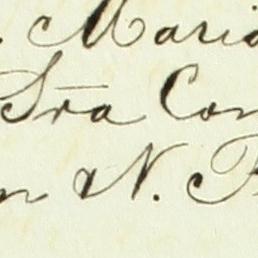 . Maria
Sra Con
n N. F